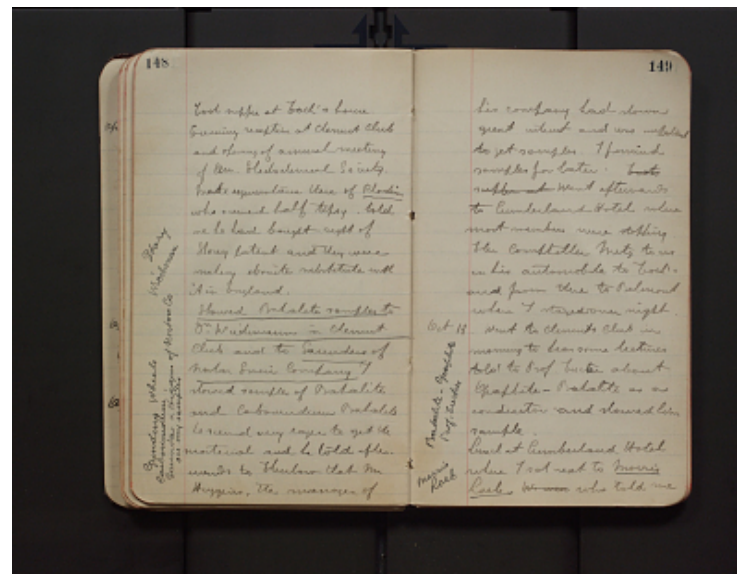 148
Took supper at Toch's house
Evening reception at Chemist Club
and opening of annual meeting
of Am. Electrochemical Society.
Made acquaintance there of
who owned half told
me he had bought right of
Story patent and they were
making ebonite substitute with
it in England.
Showed Bakalite samples to
Dr Weidmann in Chemist
Club and to Saunders of
Norton Company I
showed sample of Bakalite
and Carborundum Bakalite
he seemed very eager to get the
material and he told after-
wards to that Mr
Higgins, the manager of
Story
Grinding Wheels
Carborundum
Saunders & Higgins of Norton Co
on my samples
149
his company had shown
great interest and was impatient
to get samples. I promised
samples for later. Took
supper at Went afterwards
to Cumberland Hotel where
most members were stopping
Then Comptroller Metz took us
in his automobile to Toch's
and from there to Belmont
where I stayed over night.
Oct 18
Went to Chemists Club in
morning to hear some lectures
told to Prof about
Graphite - Bakalite as a
conductor and showed him
sample.
Lunch at Cumberland Hotel
where I sat next to Morris
Loeb who told me
Bakalite - Graphite
Prof.
Morris
Loeb